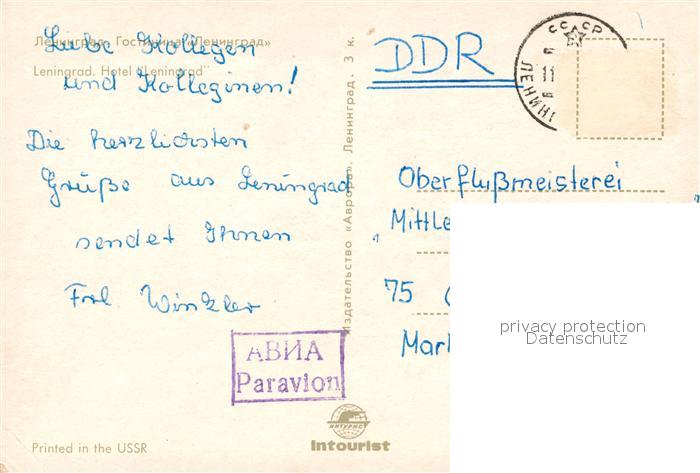 Ленинград. Гостиница «Ленинград»
Leningrad. Hotel "Leningrad"
Liebe Kollegen
und Kolleginen!
Die herzlichsten
Grüße aus Leningrad
sendet Ihnen
Frl. Winkler
АВИА
Paravion
Printed in the USSR
Издательство «Аврора». Ленинград. 3 к.
ИНТУРИСТ
Intourist
DDR
СССР
11
ЛЕНИН
Oberflußmeisterei
Mittle
75
Mar
privacy protection
Datenschutz